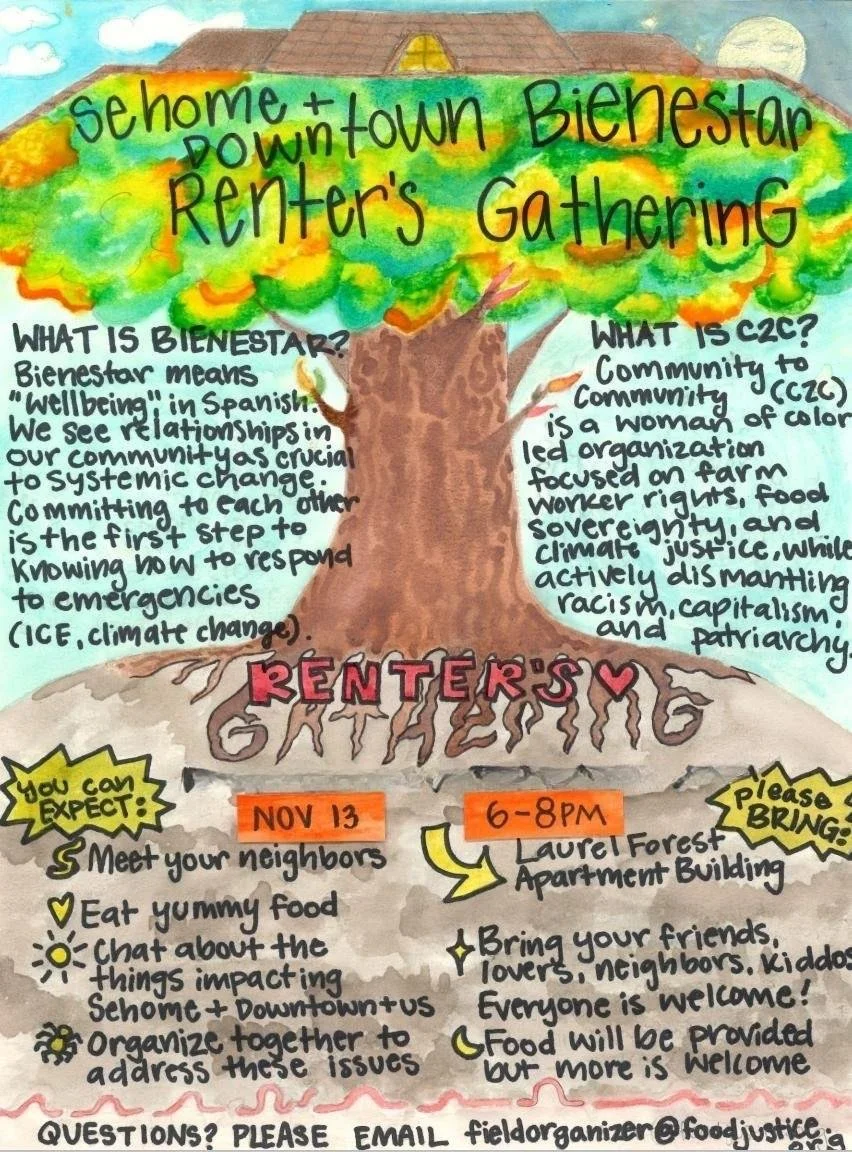 Sehome +
Downtown Bienestar
Renter's Gathering
WHAT IS BIENESTAR?
Bienestar means
"Wellbeing" in Spanish.
We see relationships in
our community as crucial
to systemic change.
Committing to each other
is the first step to
Knowing how to respond
to emergencies
(ICE, climate change).
WHAT IS C2C?
Community to
Community (C2C)
is a woman of color
led organization
focused on farm
worker rights, food
sovereignty, and
climate justice, while
actively dismantling
racism, capitalism,
and patriarchy.
RENTER'S
GATHERING
You can
EXPECT:
NOV 13
6-8PM
please
BRING:
Meet your neighbors
Eat yummy food
Chat about the
things impacting
Sehome + Downtown + us
Organize together to
address these issues
Laurel Forest
Apartment Building
Bring your friends,
lovers, neighbors, kiddos
Everyone is welcome!
Food will be provided
but more is welcome
QUESTIONS? PLEASE EMAIL fieldorganizer@foodjustice.
org